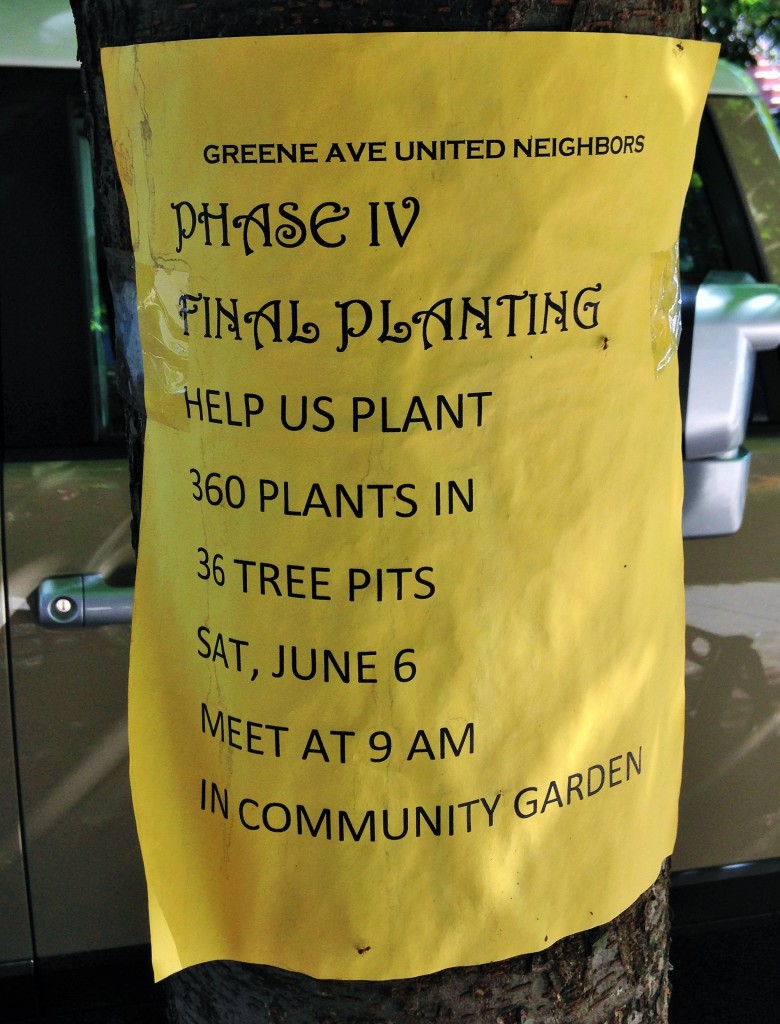 GREENE AVE UNITED NEIGHBORS
PHASE IV
FINAL PLANTING
HELP US PLANT
360 PLANTS IN
36 TREE PITS
SAT, JUNE 6
MEET AT 9 AM
IN COMMUNITY GARDEN